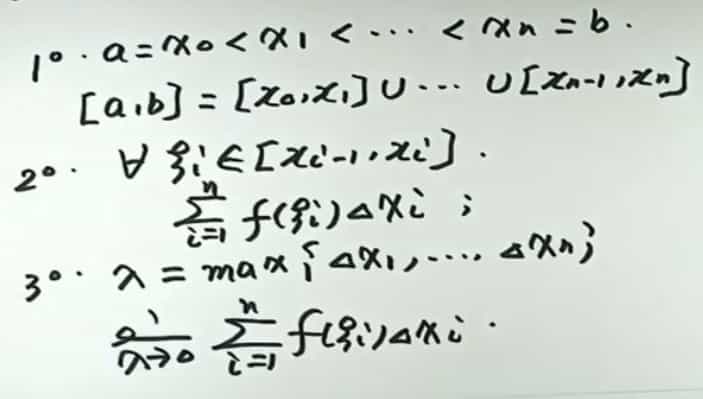 1°. a = x₀ < x₁ < ··· < xₙ = b.
[a,b] = [x₀,x₁] ∪ ··· ∪ [xₙ₋₁,xₙ]
2°. ∀ ξᵢ ∈ [xᵢ₋₁,xᵢ].
∑ᵢ₌₁ⁿ f(ξᵢ)△xᵢ ;
3°. λ = max{△x₁, ····, △xₙ}
λ→0 ∑ᵢ₌₁ⁿ f(ξᵢ)△xᵢ .